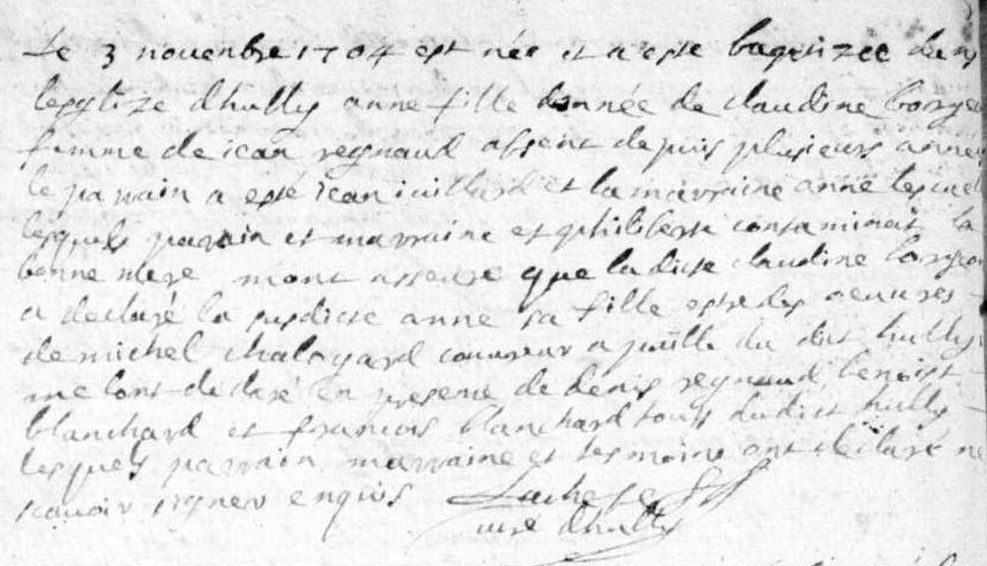 Le 3 novenbre 1704 est née et a esté baptizée dens
lesglize dhully anne fille donnée de claudine borgeo
femme de iean regnaud absent depuis plusieurs année
le parrain a esté iean iuillard et la marraine anne
lesquels parrain et marraine et philiberte contaminait la
bonne mere mont asseuré que la dicte claudine borgeo
a declaré la susdicte anne sa fille estre des oeuures
de michel chalogard couureur a paille du dit hully
me lont declaré en presence de denis regnaud, benoist
blanchard et francois blanchard touts dudict hully
lesquels parrain marraine et tesmoins ont declaré ne
scauoir signer enquis
curé dhully